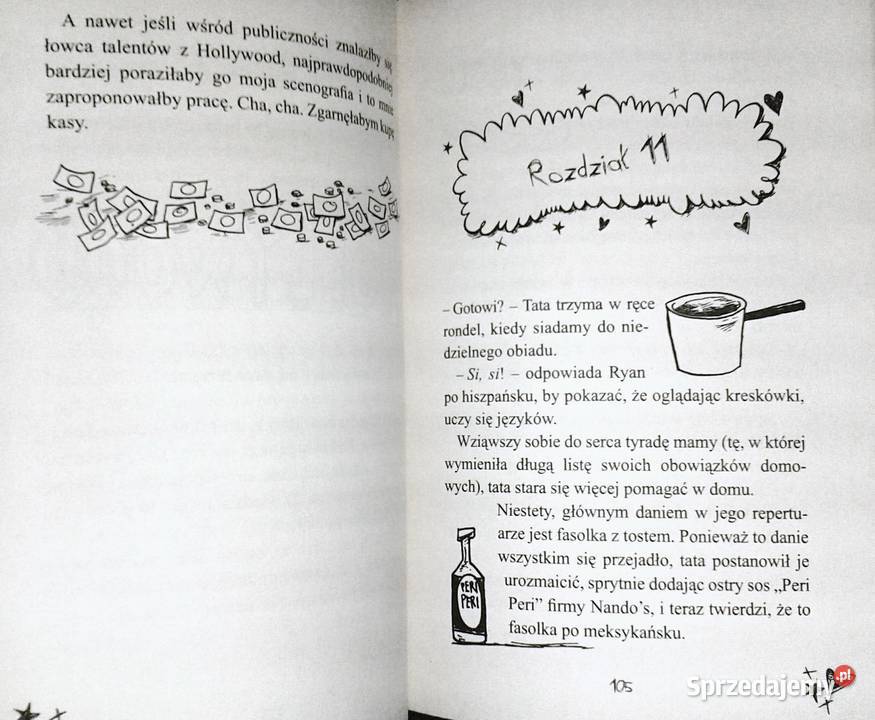 A nawet jeśli wśród publiczności znalazłby się
łowca talentów z Hollywood, najprawdopodobniej
bardziej poraziłaby go moja scenografia i to mnie
zaproponowałby pracę. Cha, cha. Zgarnęłabym kupę
kasy.
Rozdział 11
– Gotowi? – Tata trzyma w ręce
rondel, kiedy siadamy do nie-
dzielnego obiadu.
– Si, si! – odpowiada Ryan
po hiszpańsku, by pokazać, że oglądając kreskówki,
uczy się języków.
Wziąwszy sobie do serca tyradę mamy (tę, w której
wymieniła długą listę swoich obowiązków domo-
wych), tata stara się więcej pomagać w domu.
Niestety, głównym daniem w jego repertu-
arze jest fasolka z tostem. Ponieważ to danie
wszystkim się przejadło, tata postanowił je
urozmaicić, sprytnie dodając ostry sos „Peri
Peri” firmy Nando’s, i teraz twierdzi, że to
fasolka po meksykańsku.
PERI
PERI
105
Sprzedajemy.pl